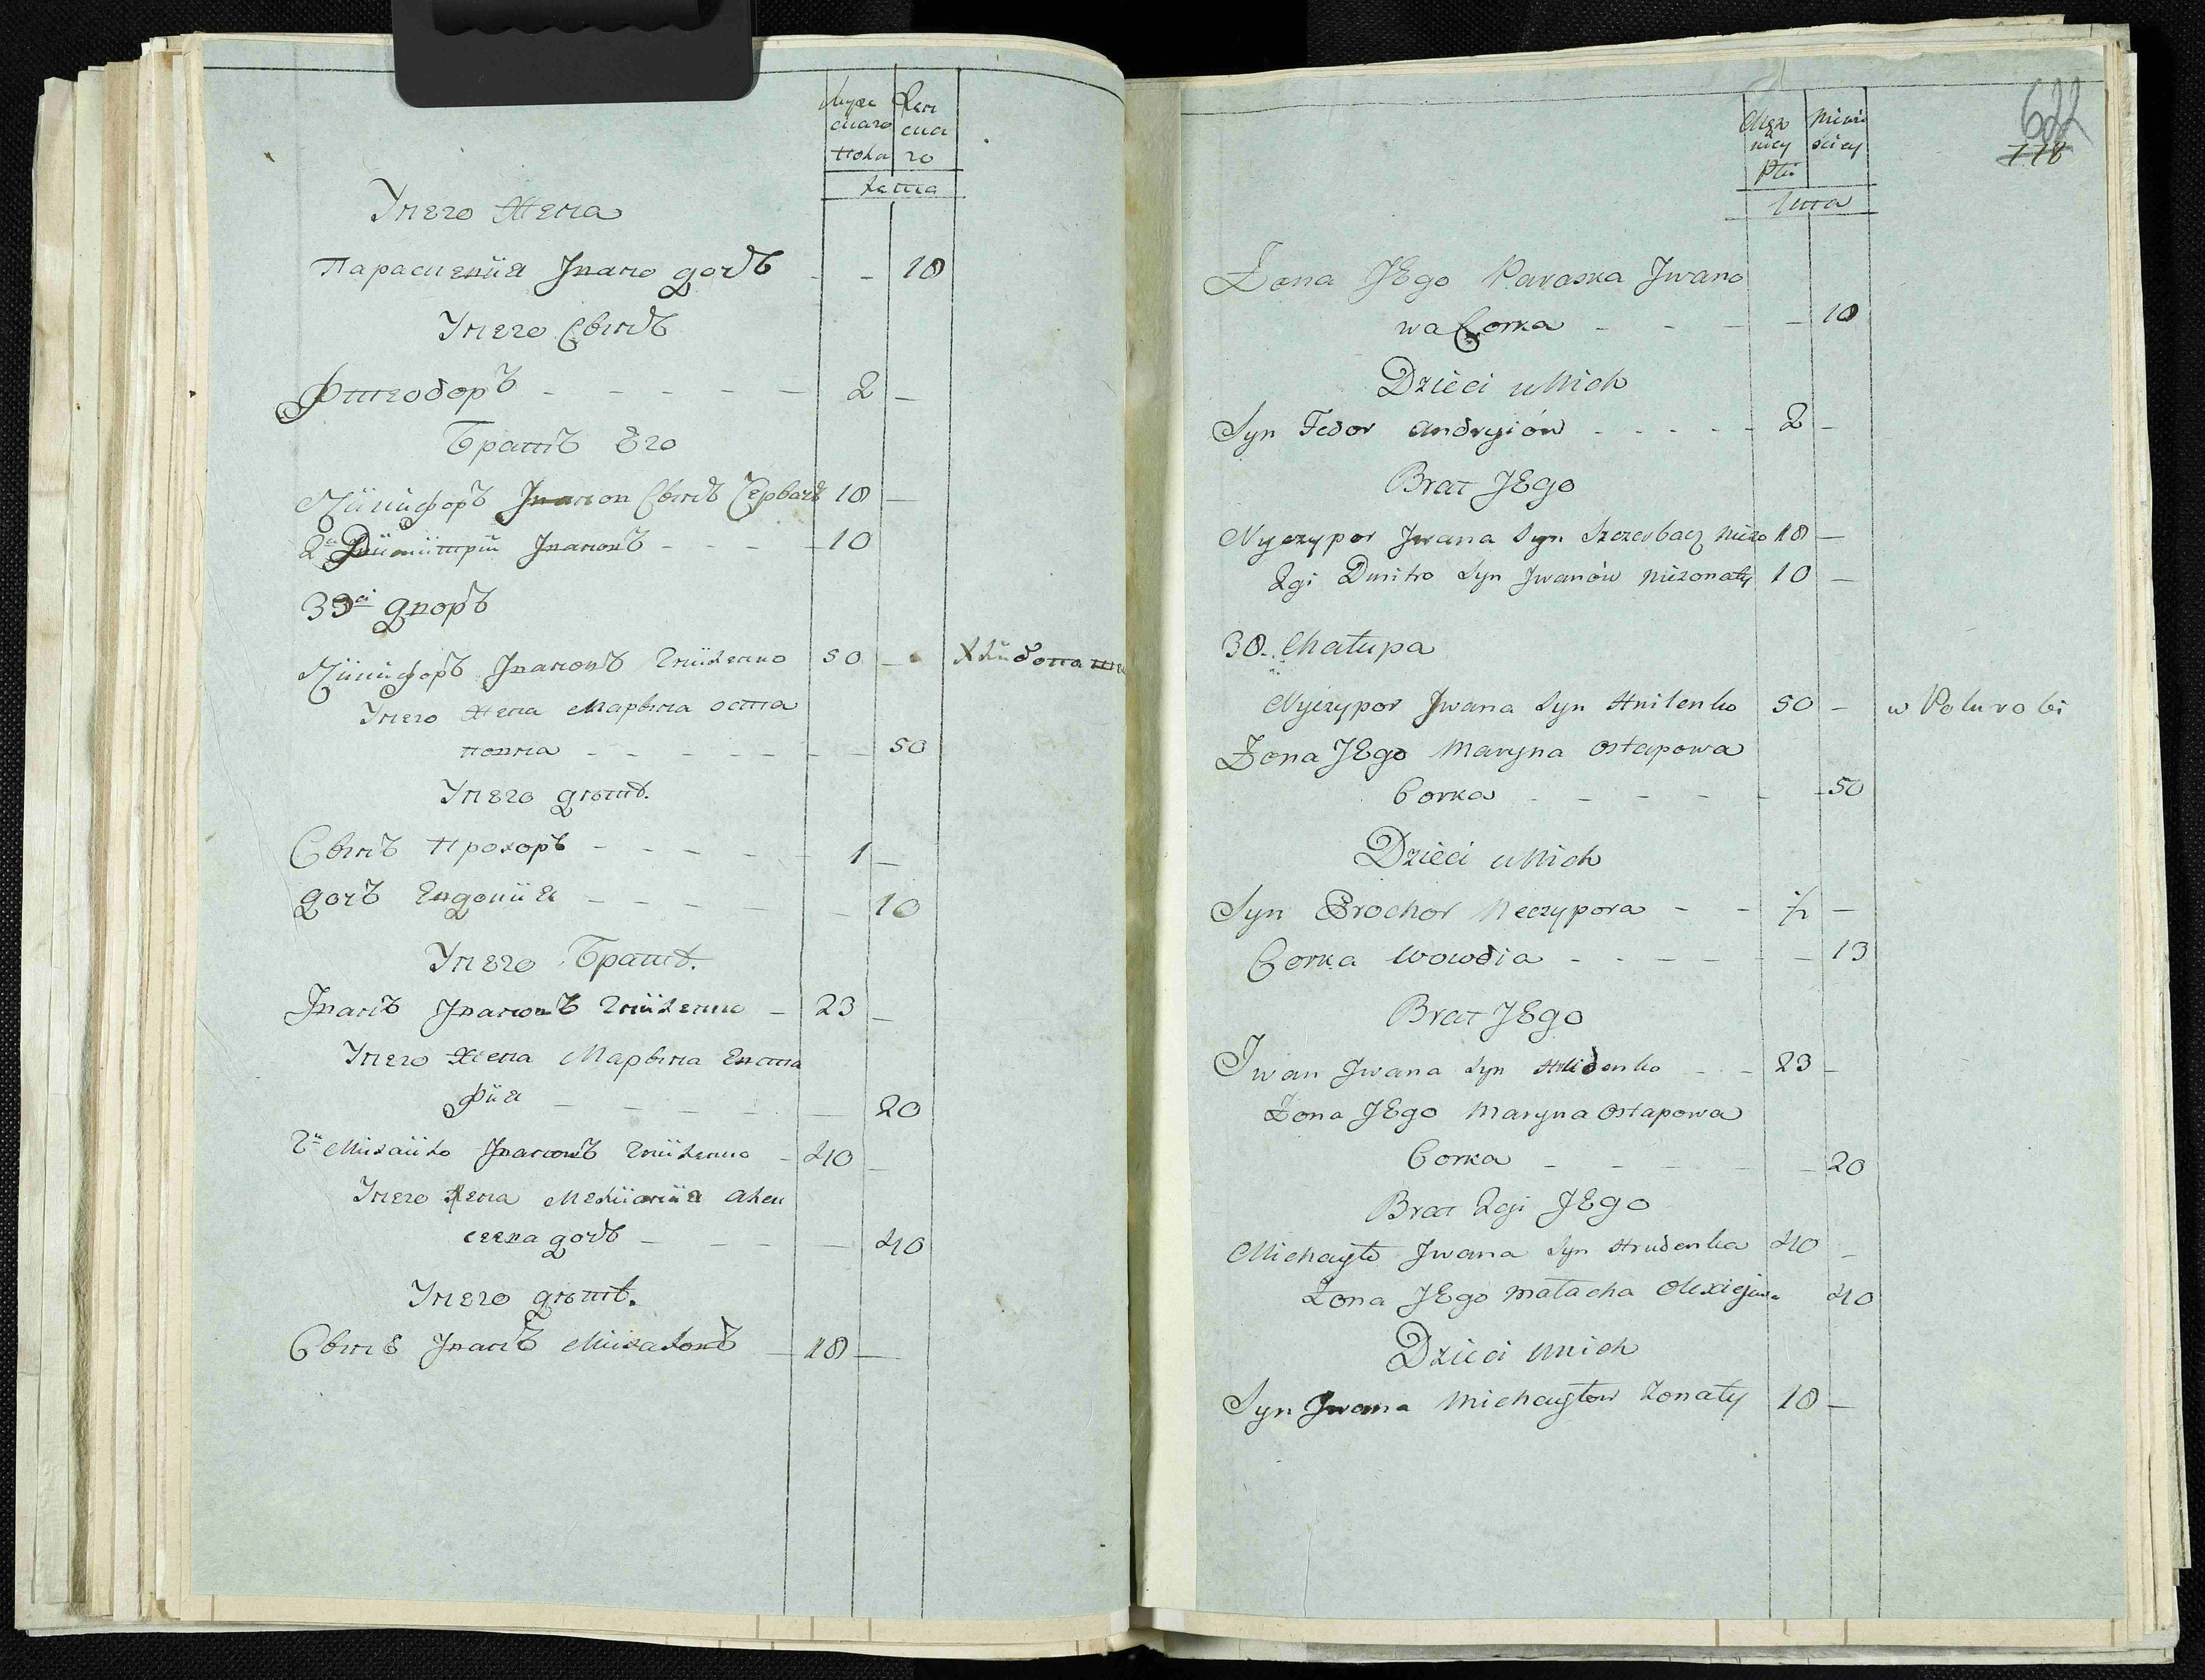 Муже
скаго
пола
Жен
ска
го
лета
Унего жена
Параскевiя Ивано дочь - - 18
Унего Сынъ
Фтеодоръ - - - - - 2 -
Братъ Его
Никифоръ Иванов Сынъ 18 -
2й Димитрiй Ивановъ - - - 10
33й дворъ
Никифоръ Ивановъ Гниленко 50 -
Унего жена Марына Оста
повна - - - - - - 50
Унего дѣти.
Сынъ Прохоръ - - - - - 1 -
дочь Евдокiя - - - - - 10
Унего Братъ.
Иванъ Ивановъ Гниленко - 23 -
Унего жена Марына Евста
фiя - - - - - 20
2й Михайло Ивановъ Гниленко - 40 -
Унего жена Алек
сеева дочь - - - - 40
Унего дѣти.
Сынъ Иванъ Михаловъ - 18 -
622
118
Męz
nicy
Płci
Niewi
sciey
Latta
Zona JEgo Paraska Jwano
wa Corka - - - - 18
Dzieci u Nich
Syn Fedor Andryiów - - - - - 2 -
Brat JEgo
Nyczypor Jwana Syn Szczerbacz Nieżo 18 -
2gi Dmitro Syn Jwanów Nieżonaty 10 -
30. Chałupa
Nyczypor Jwana Syn Hnilenko 50 - w Polurobi
Zona JEgo Maryna Ostapowa
Corka - - - - - - 50
Dzieci u Nich
Syn Prochor Neczypora - - ½ -
Corka Wowdia - - - - - - 13
Brat JEgo
Jwan Jwana Syn Hnidenko - - 23 -
Zona JEgo Maryna Ostapowa
Corka - - - - - 20
Brat 2gi JEgo
Michayło Jwana Syn Hnidenka 40 -
Zona JEgo Małacha Olexiejowa 40
Dzieci unich
Syn Jwana Michayłow Zonaty 18 -